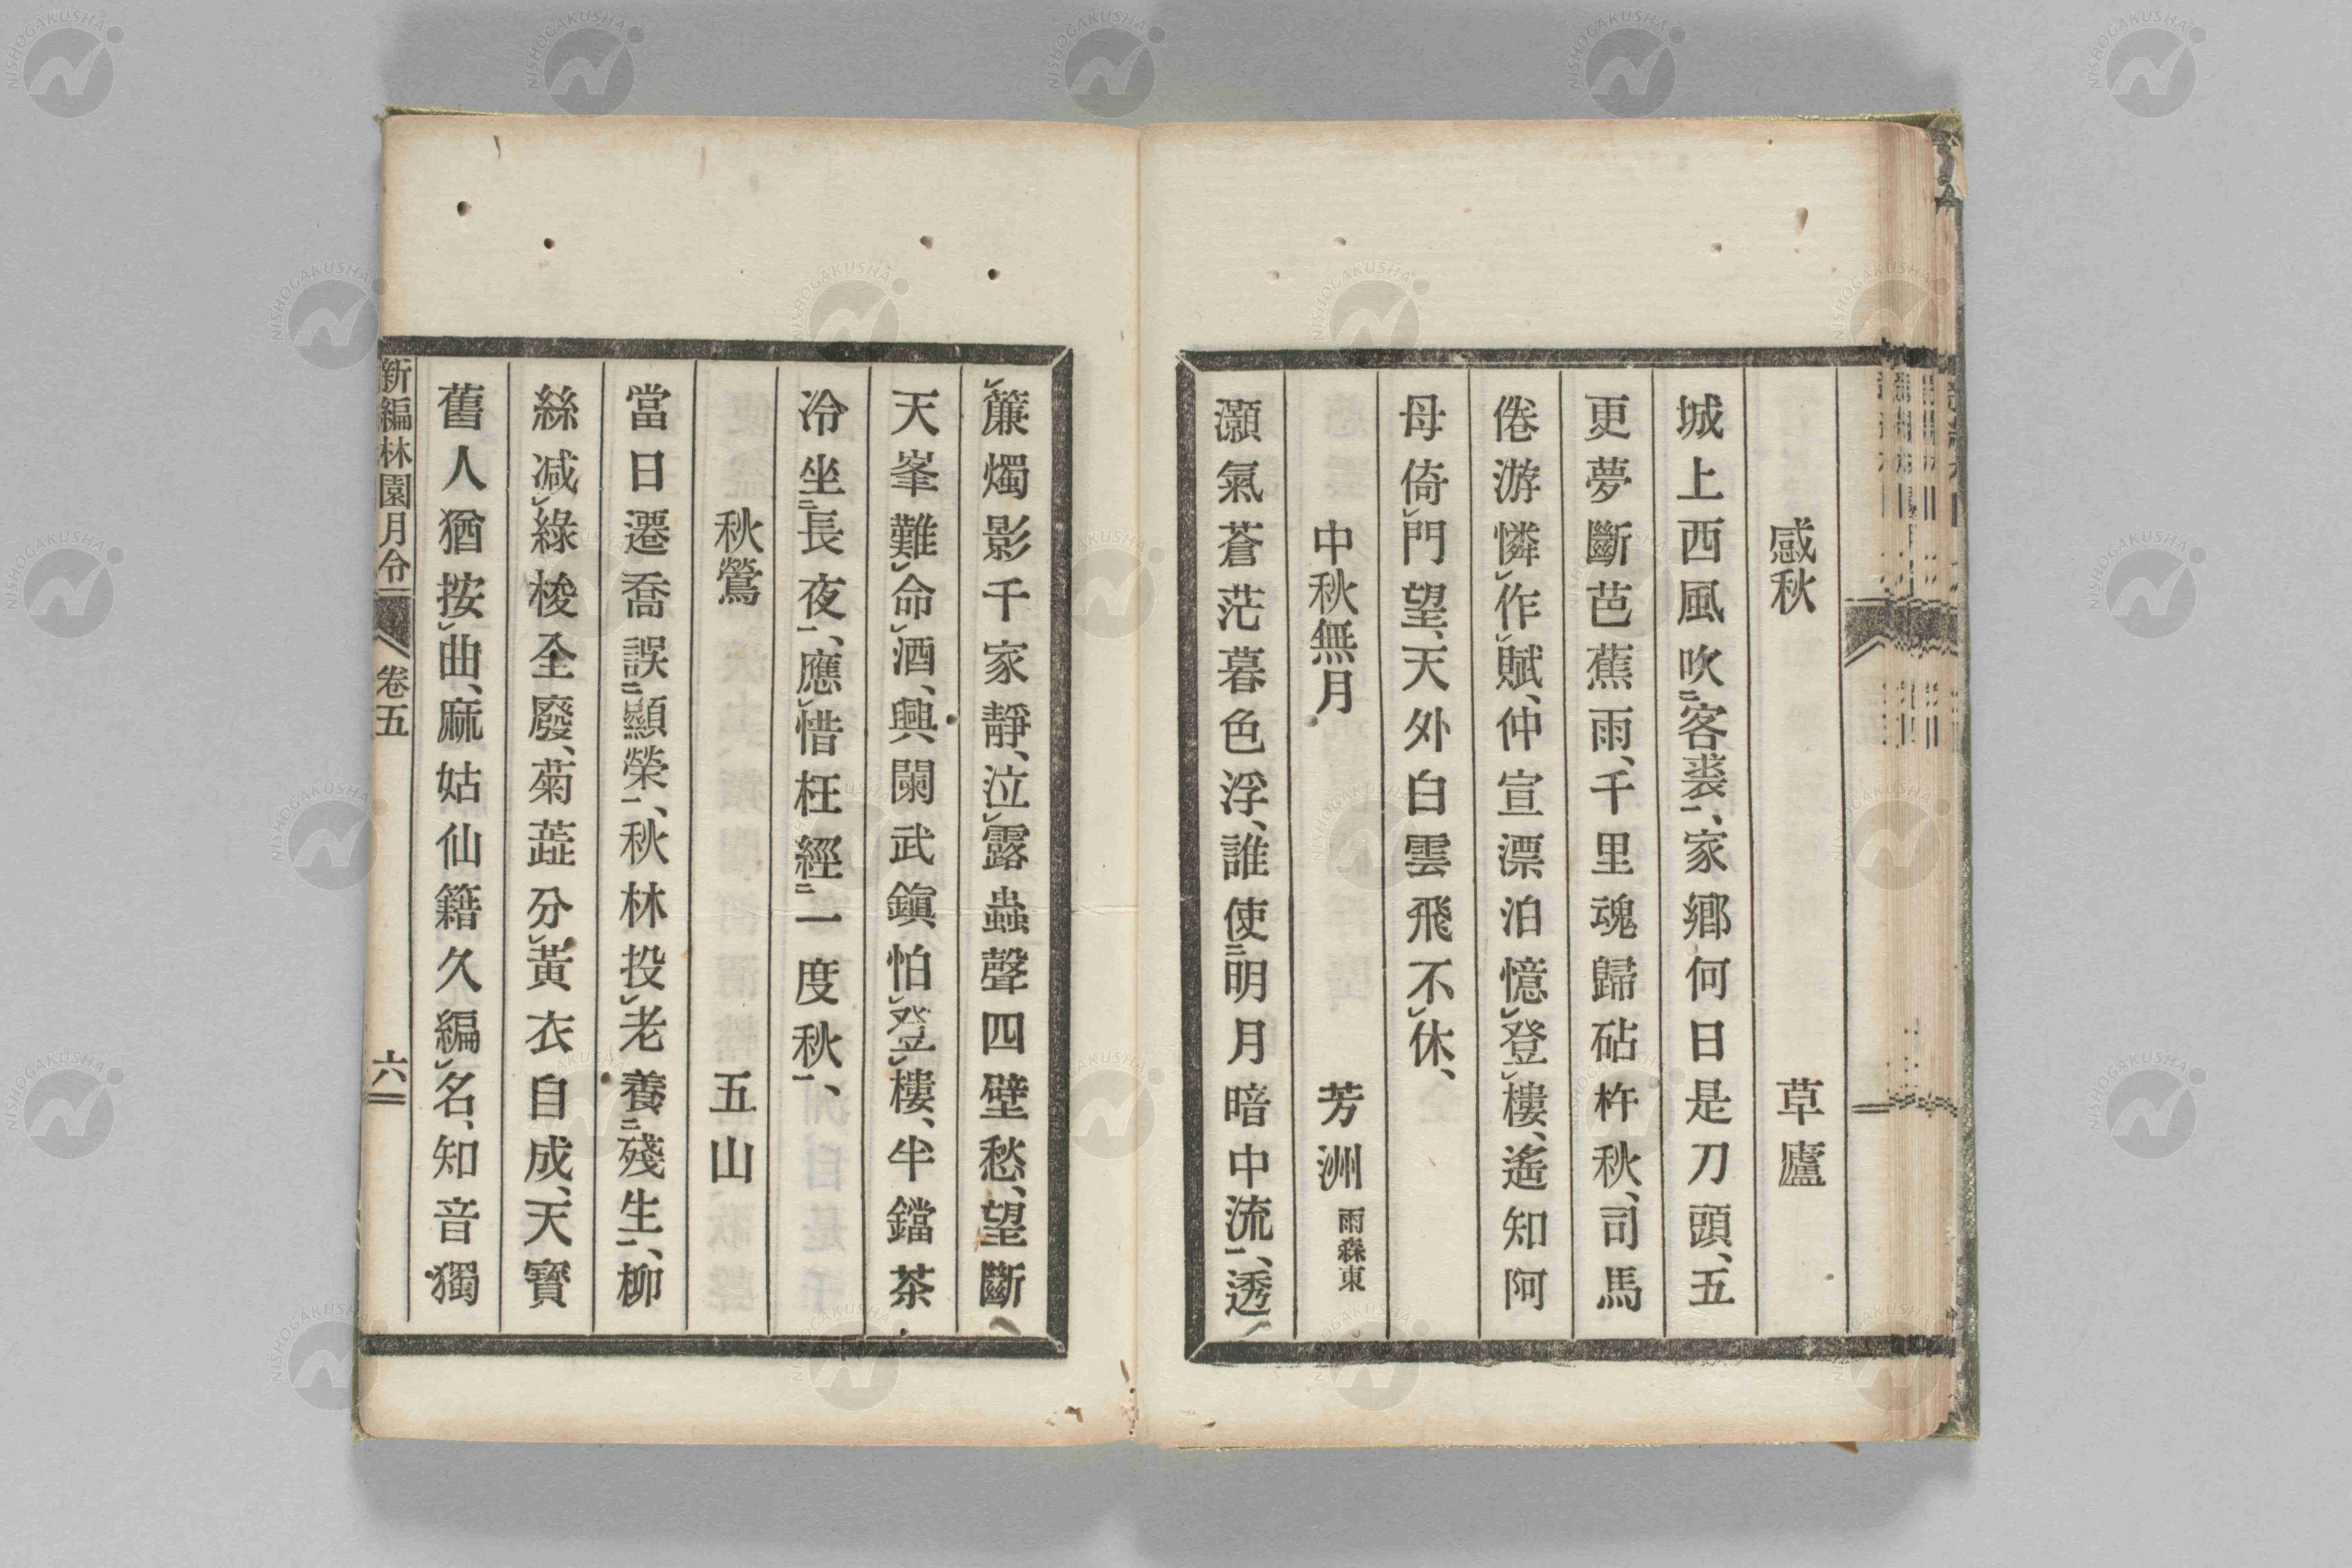 感秋　草廬
城上西風吹㆓客裘㆒、家鄉何日是刀頭、五
更夢斷芭蕉雨、千里魂歸砧杵秋、司馬
倦游憐㆑作㆑賦、仲宣漂泊憶㆑登㆑樓、遙知阿
母倚㆑門望、天外白雲飛不㆑休、
中秋無月　芳洲 雨森東
灝氣蒼茫暮色浮、誰使㆓明月暗中流㆒、透
㆑簾燭影千家靜、泣㆑露蟲聲四壁愁、望斷
天峯難㆑命㆑酒、興闌武鎭怕㆑登㆑樓、半鐺茶
冷坐㆓長夜㆒、應㆑惜枉經㆓一度秋㆒、
秋鶯　五山
當日遷喬誤㆓顯榮㆒、秋林投㆑老養㆓殘生㆒、柳
絲减㆑綠梭全廢、菊蘂分㆑黃衣自成、天寶
舊人猶按㆑曲、麻姑仙籍久編㆑名、知音獨
新編林園月令 卷五 六
NISHOGAKUSHA